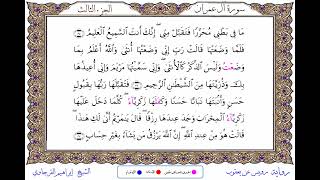 سورة آل عمران الجزء الثالث
مَا فِى بَطْنِى مُحَرَّرًا فَتَقَبَّلْ مِنِّى إِنَّكَ أَنتَ ٱلسَّمِيعُ ٱلْعَلِيمُ
فَلَمَّا وَضَعَتْهَا قَالَتْ رَبِّ إِنِّى وَضَعْتُهَا أُنثَىٰ وَٱللَّهُ أَعْلَمُ بِمَا
وَضَعْتُ وَلَيْسَ ٱلذَّكَرُ كَٱلْأُنثَىٰ وَإِنِّى سَمَّيْتُهَا مَرْيَمَ وَإِنِّى أُعِيذُهَا
بِكَ وَذُرِّيَّتَهَا مِنَ ٱلشَّيْطَٰنِ ٱلرَّجِيمِ فَتَقَبَّلَهَا رَبُّهَا بِقَبُولٍ
حَسَنٍ وَأَنۢبَتَهَا نَبَاتًا حَسَنًا وَكَفَلَهَا زَكَرِيَّآءُ كُلَّمَا دَخَلَ عَلَيْهَا
زَكَرِيَّآءُ ٱلْمِحْرَابَ وَجَدَ عِندَهَا رِزْقًا قَالَ يَٰمَرْيَمُ أَنَّىٰ لَكِ هَٰذَا
قَالَتْ هُوَ مِنْ عِندِ ٱللَّهِ إِنَّ ٱللَّهَ يَرْزُقُ مَن يَشَآءُ بِغَيْرِ حِسَابٍ
رواية رويس عن يعقوب الشيخ إبراهيم